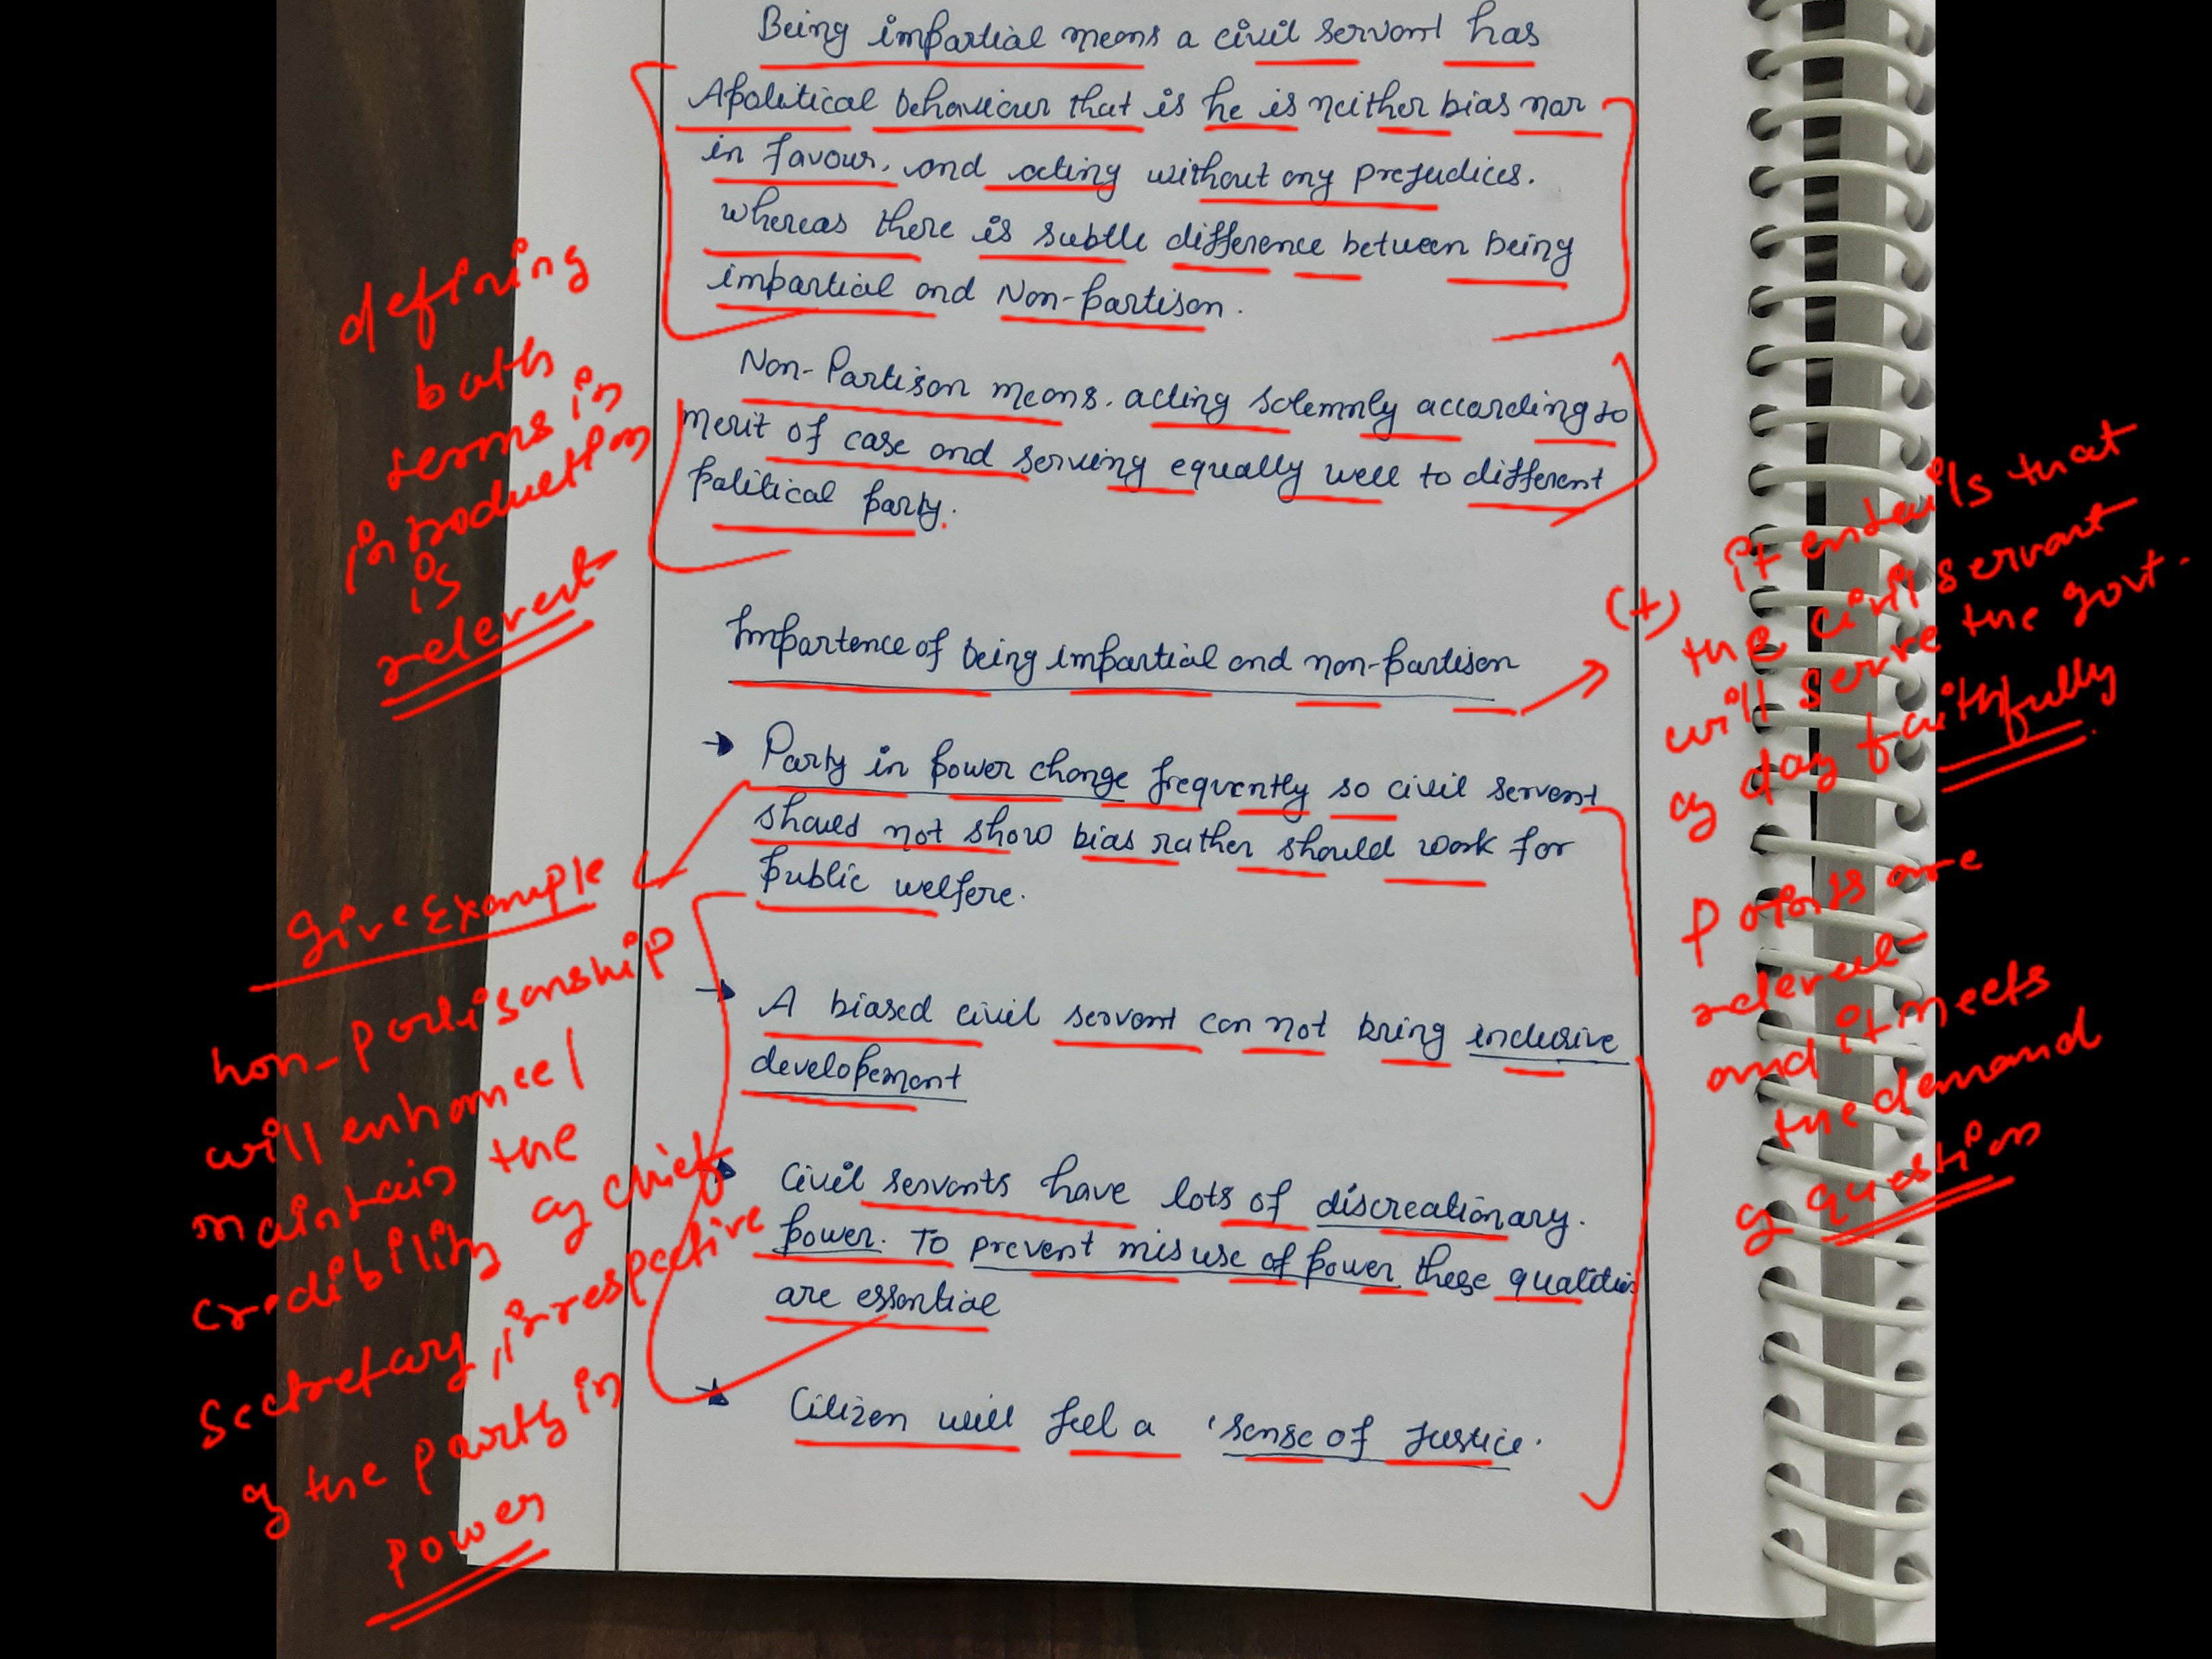 Being impartial means a civil servant has
Apolitical behaviour that is he is neither bias nor
in favour, and acting without any prejudices.
whereas there is subtle difference between being
impartial and Non-partison.
Non-Partison means, acting solemnly according to
merit of case and serving equally well to different
political party.
defining
both
terms in
introduction
is
relevent
Importence of being impartial and non-partison
(+) it entails that
the civil servant
will serve the govt.
of day faithfully.
→ Party in power change frequently so civil servent
should not show bias rather should work for
public welfere.
→ A biased civil servant can not bring inclusive
developement
→ Civil servants have lots of discreationary.
power. To prevent misuse of power these qualities
are essential
→ Citizen will feel a 'sense of Justice.
Give Example
non-partisanship
will enhance/
maintain the
credibility of chief
secretary, irrespective
of the party in
power
Points are
relevent
and it meets
the demand
of question